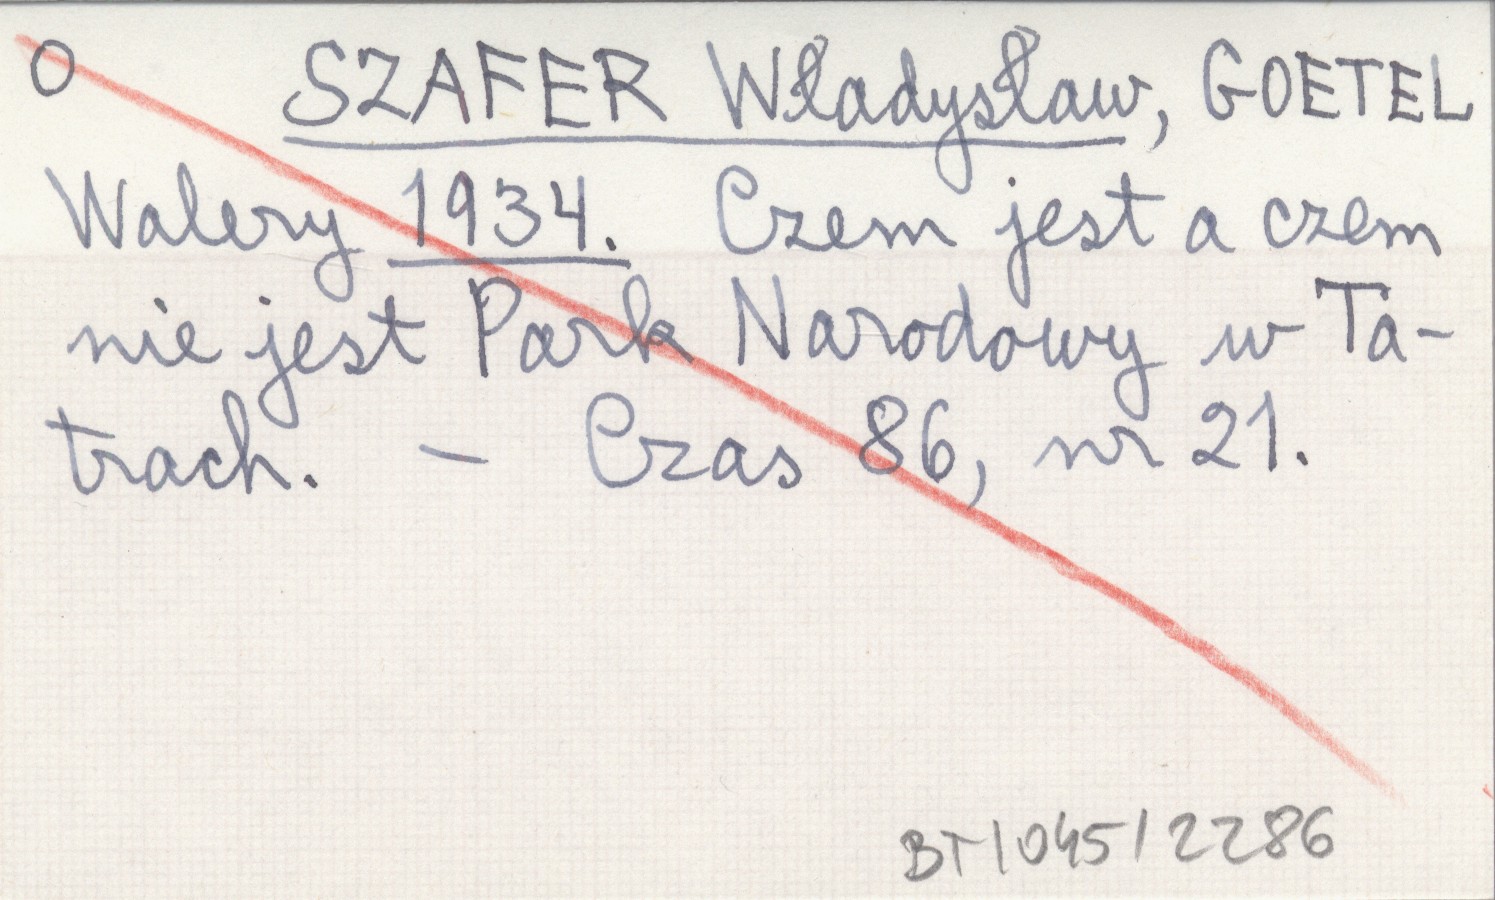 O SZAFER Władysław, GOETEL
Walery 1934. Czem jest a czem
nie jest Park Narodowy w Ta-
trach. – Czas 86, nr 21.
BT/045/2286